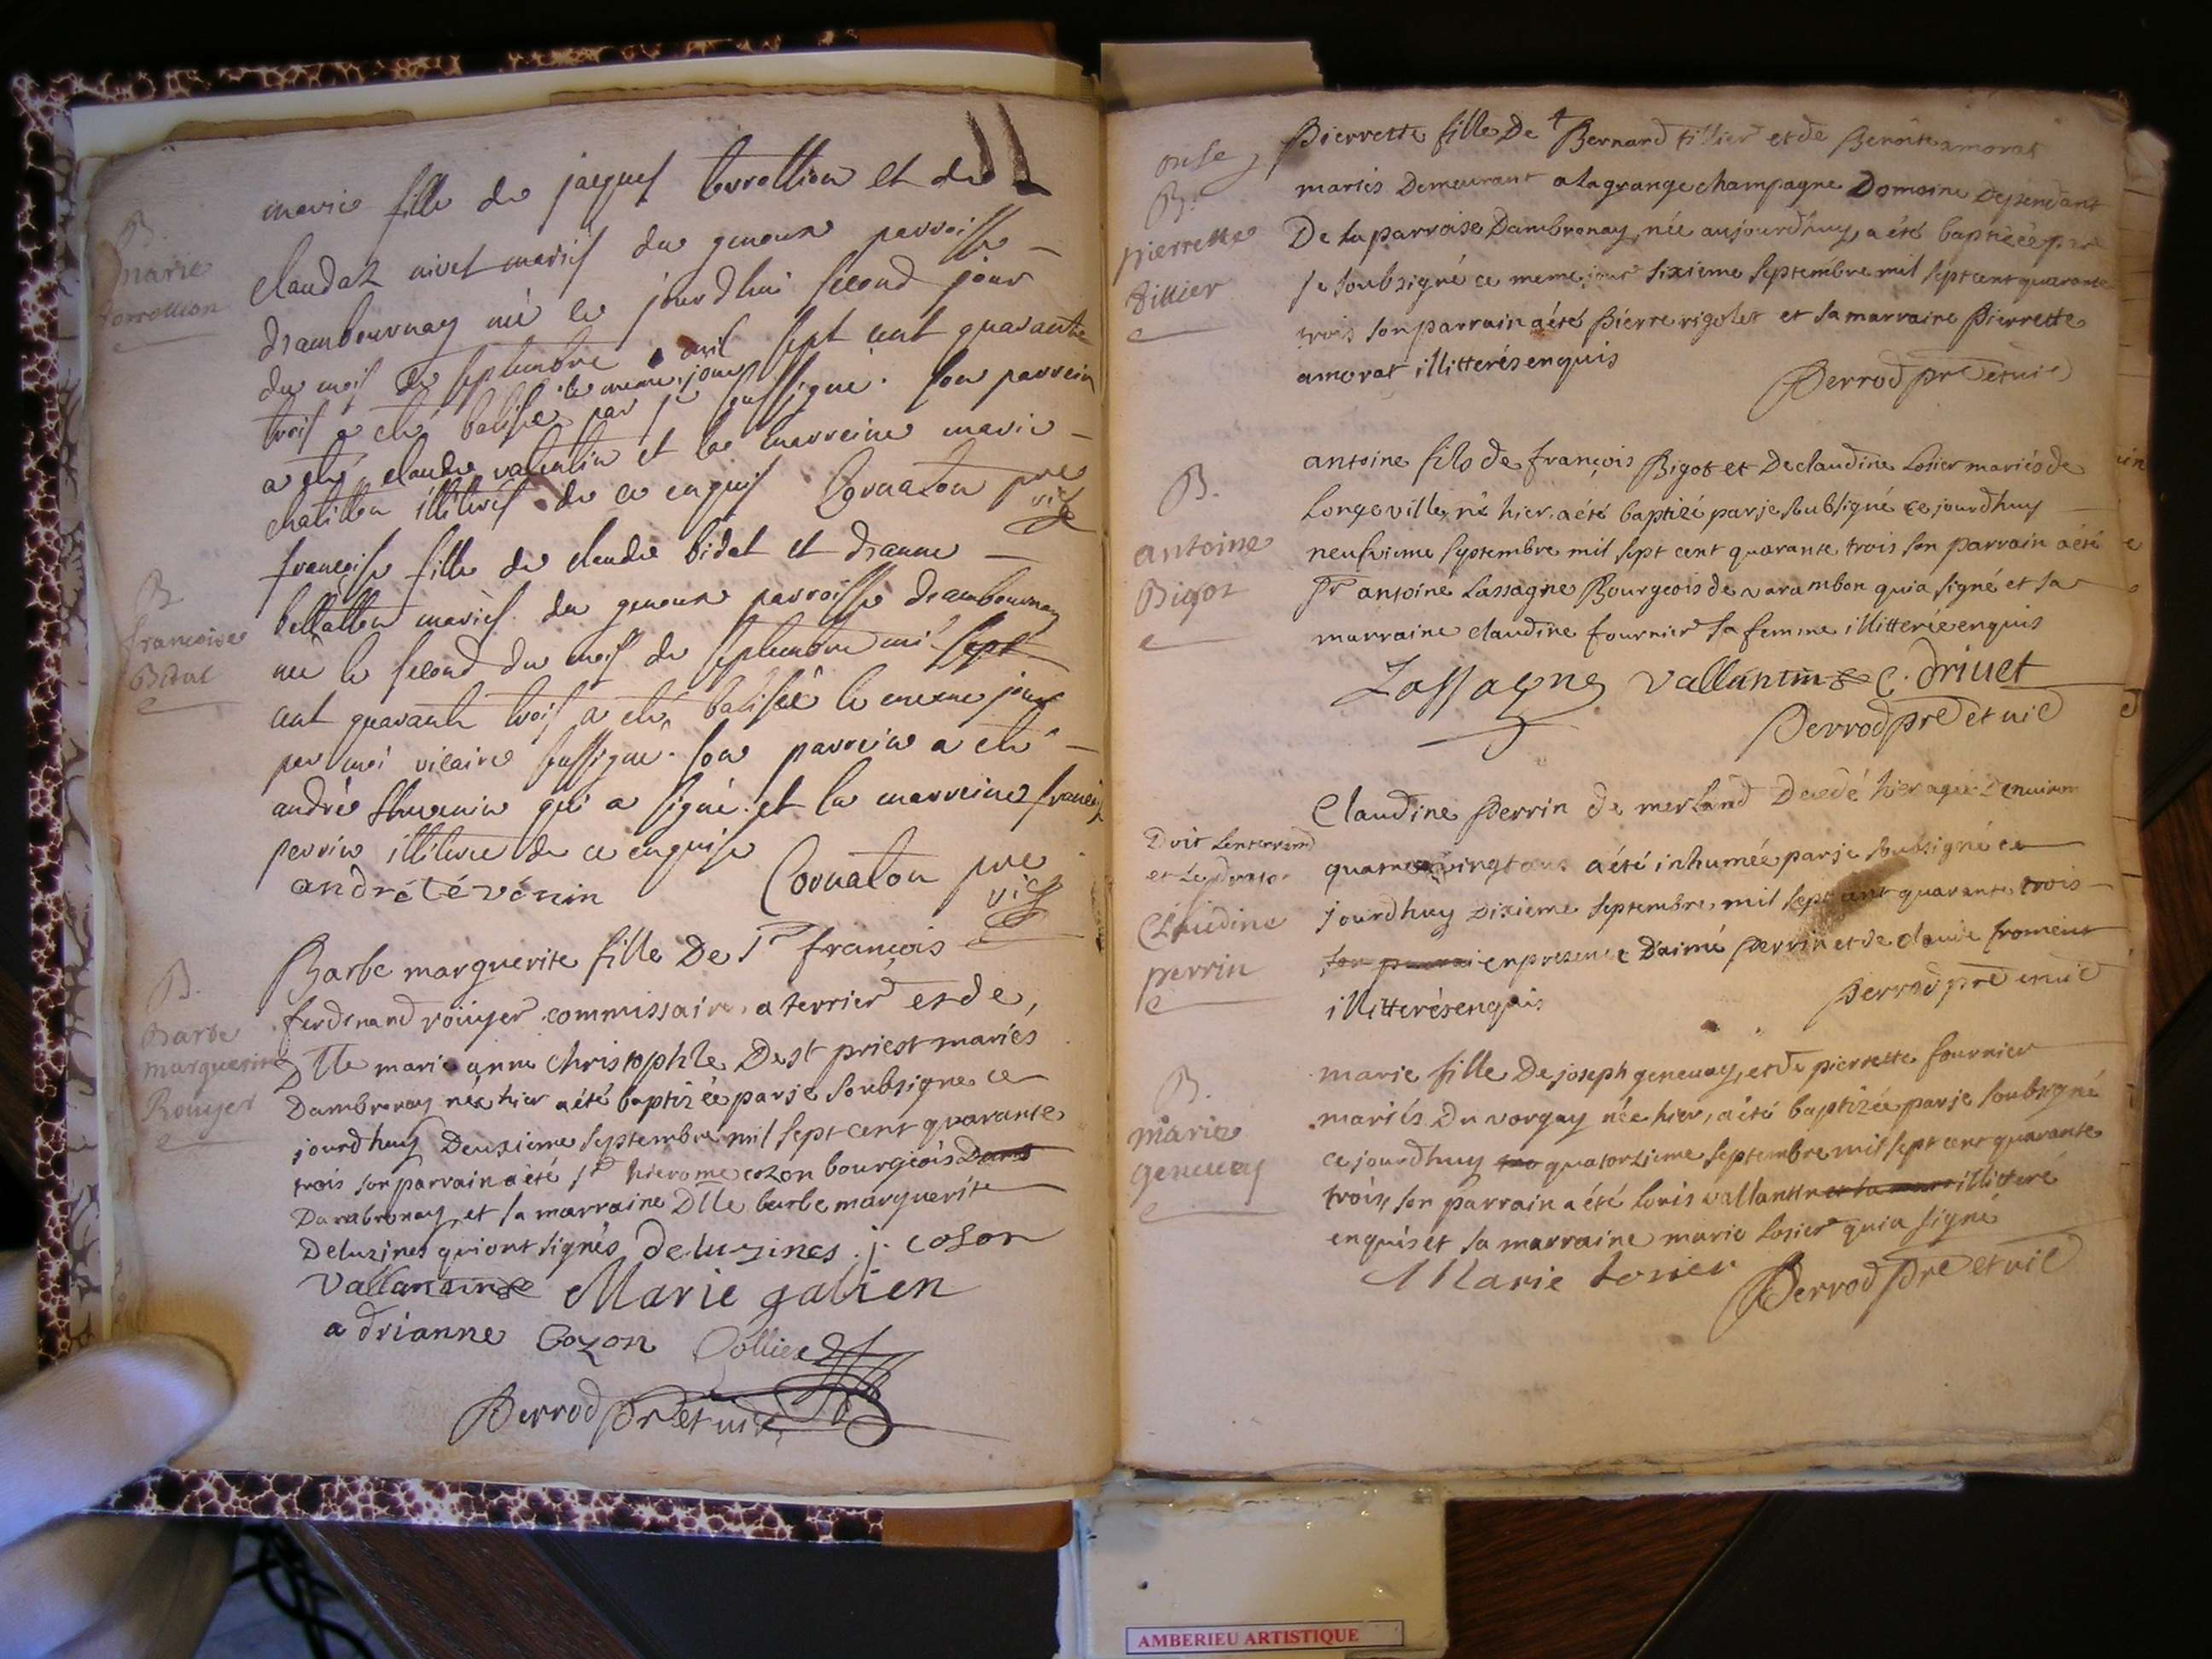 B.
marie
torrollion
marie fille de jacques torrollion et de
claudaz nivet mariés du genoux parroisse
d'ambournay née le jourdhui second jour
du mois de septembre mil sept cent quarante
trois a eté batisée le meme jour par je sussigné. son parrein
a eté claude valentin et la marreine marie
chatillon illiterés de ce enquis Cornaton pre
vic
B.
francoise
Bidat
françoise fille de claude bidat et d'anne
bellatton mariés du genoux parroisse d'ambournay
née le second du mois de septembre mil sept
cent quarante trois a eté batisée le meme jour
par moi vicaire sussigné. son parrein a eté
andré thevenin qui a signé et la marreine françoise
perrin illiterée de ce enquise
andré tévénin Cornaton pre
vic
B.
Barbe
marguerite
Rouyer
Barbe marguerite fille De Sr françois
ferdinand rouyer commissaire a terrier et de
Dlle marie anne christophle De st priest mariés
Dambronay née hier a été baptizée par je soubsigné ce
jourdhuy Deuxieme septembre mil sept cent quarante
trois son parrain a été sr hierome cozon bourgeois
Dambronay et sa marraine Dlle barbe marguerite
Deluzines qui ont signés deluzines. j. coson
Vallantin Marie galien
adrianne Cozon Collier
Perrod pre et vic
B.
pierrette
tillier
Pierrette fille De Bernard tillier et de Benoite amorat
mariés Demeurant a la grange champagne Domaine Dependant
De la parroise Dambronay, née aujourdhuy, a été baptizée par
je soubsigné ce meme jour sixieme septembre mil sept cent quarante
trois son parrain a été Pierre rigolet et sa marraine Pierrette
amorat illitterés enquis
Perrod pre et vic
B.
antoine
Bigot
antoine fils de françois Bigot et De claudine Losier mariés de
Longeville né hier a été baptizé par je soubsigné ce jourdhuy
neufvieme septembre mil sept cent quarante trois son parrain a été
Sr antoine Lassagne Bourgeois de varambon qui a signé et sa
marraine claudine fournier sa femme illitterée enquis
Lassagne Vallantin C. drivet
Perrod pre et vic
Doit Lenterrem
et Le
Claudine
perrin
Claudine Perrin de merland Decedé hier agée Denviron
quatre vingt ans a été inhumée par je soubsigné ce
jourdhuy Dixieme septembre mil sept cent quarante trois
son parrai en presence D'aimé perrin et de claude froment
illitterés enquis Perrod pre et vic
B.
marie
genevay
marie fille De joseph genevay, et de pierrette fournier
mariés Du vorgay née hier, a été baptizée par je soubsigné
ce jourdhuy quatorzieme septembre mil sept cent quarante
trois, son parrain a été Louis vallantin et sa marr illitteré
enquis et sa marraine marie Losier qui a signé
Marie Losier Perrod Pre et vic
AMBERIEU ARTISTIQUE